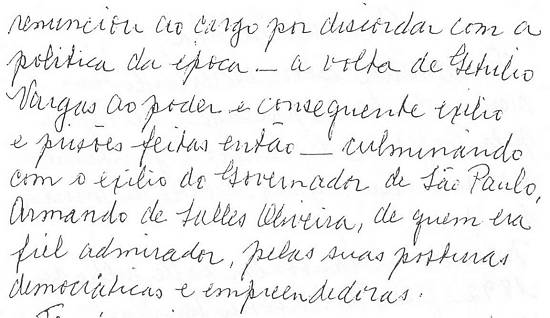 renunciou ao cargo por discordar com a
política da época — a volta de Getulio
Vargas ao poder e consequente exílio
e prisões feitas então — culminando
com o exílio do Governador de São Paulo,
Armando de Salles Oliveira, de quem era
fiel admirador, pelas suas posturas
democráticas e empreendedoras.